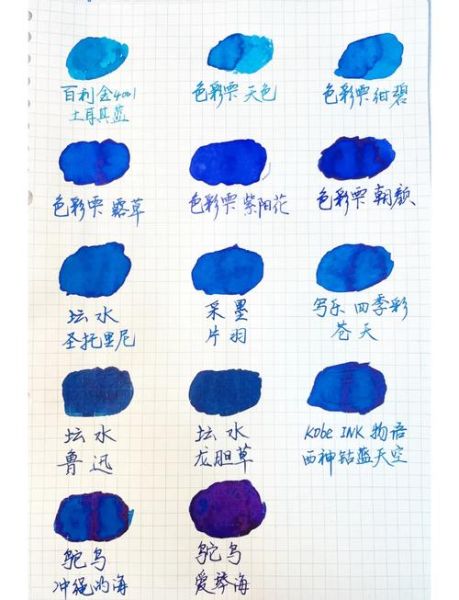 百利金4001
土耳其蓝
色彩雫 天色
色彩雫 绀碧
色彩雫 露草
色彩雫 紫阳花
色彩雫 朝颜
坛水
圣托里尼
采墨
片羽
写乐 四季彩
苍天
坛水
鲁迅
坛水
龙胆草
Kobe INK 物语
西神钻蓝天空
鸵鸟
冲绳的海
鸵鸟
爱琴海